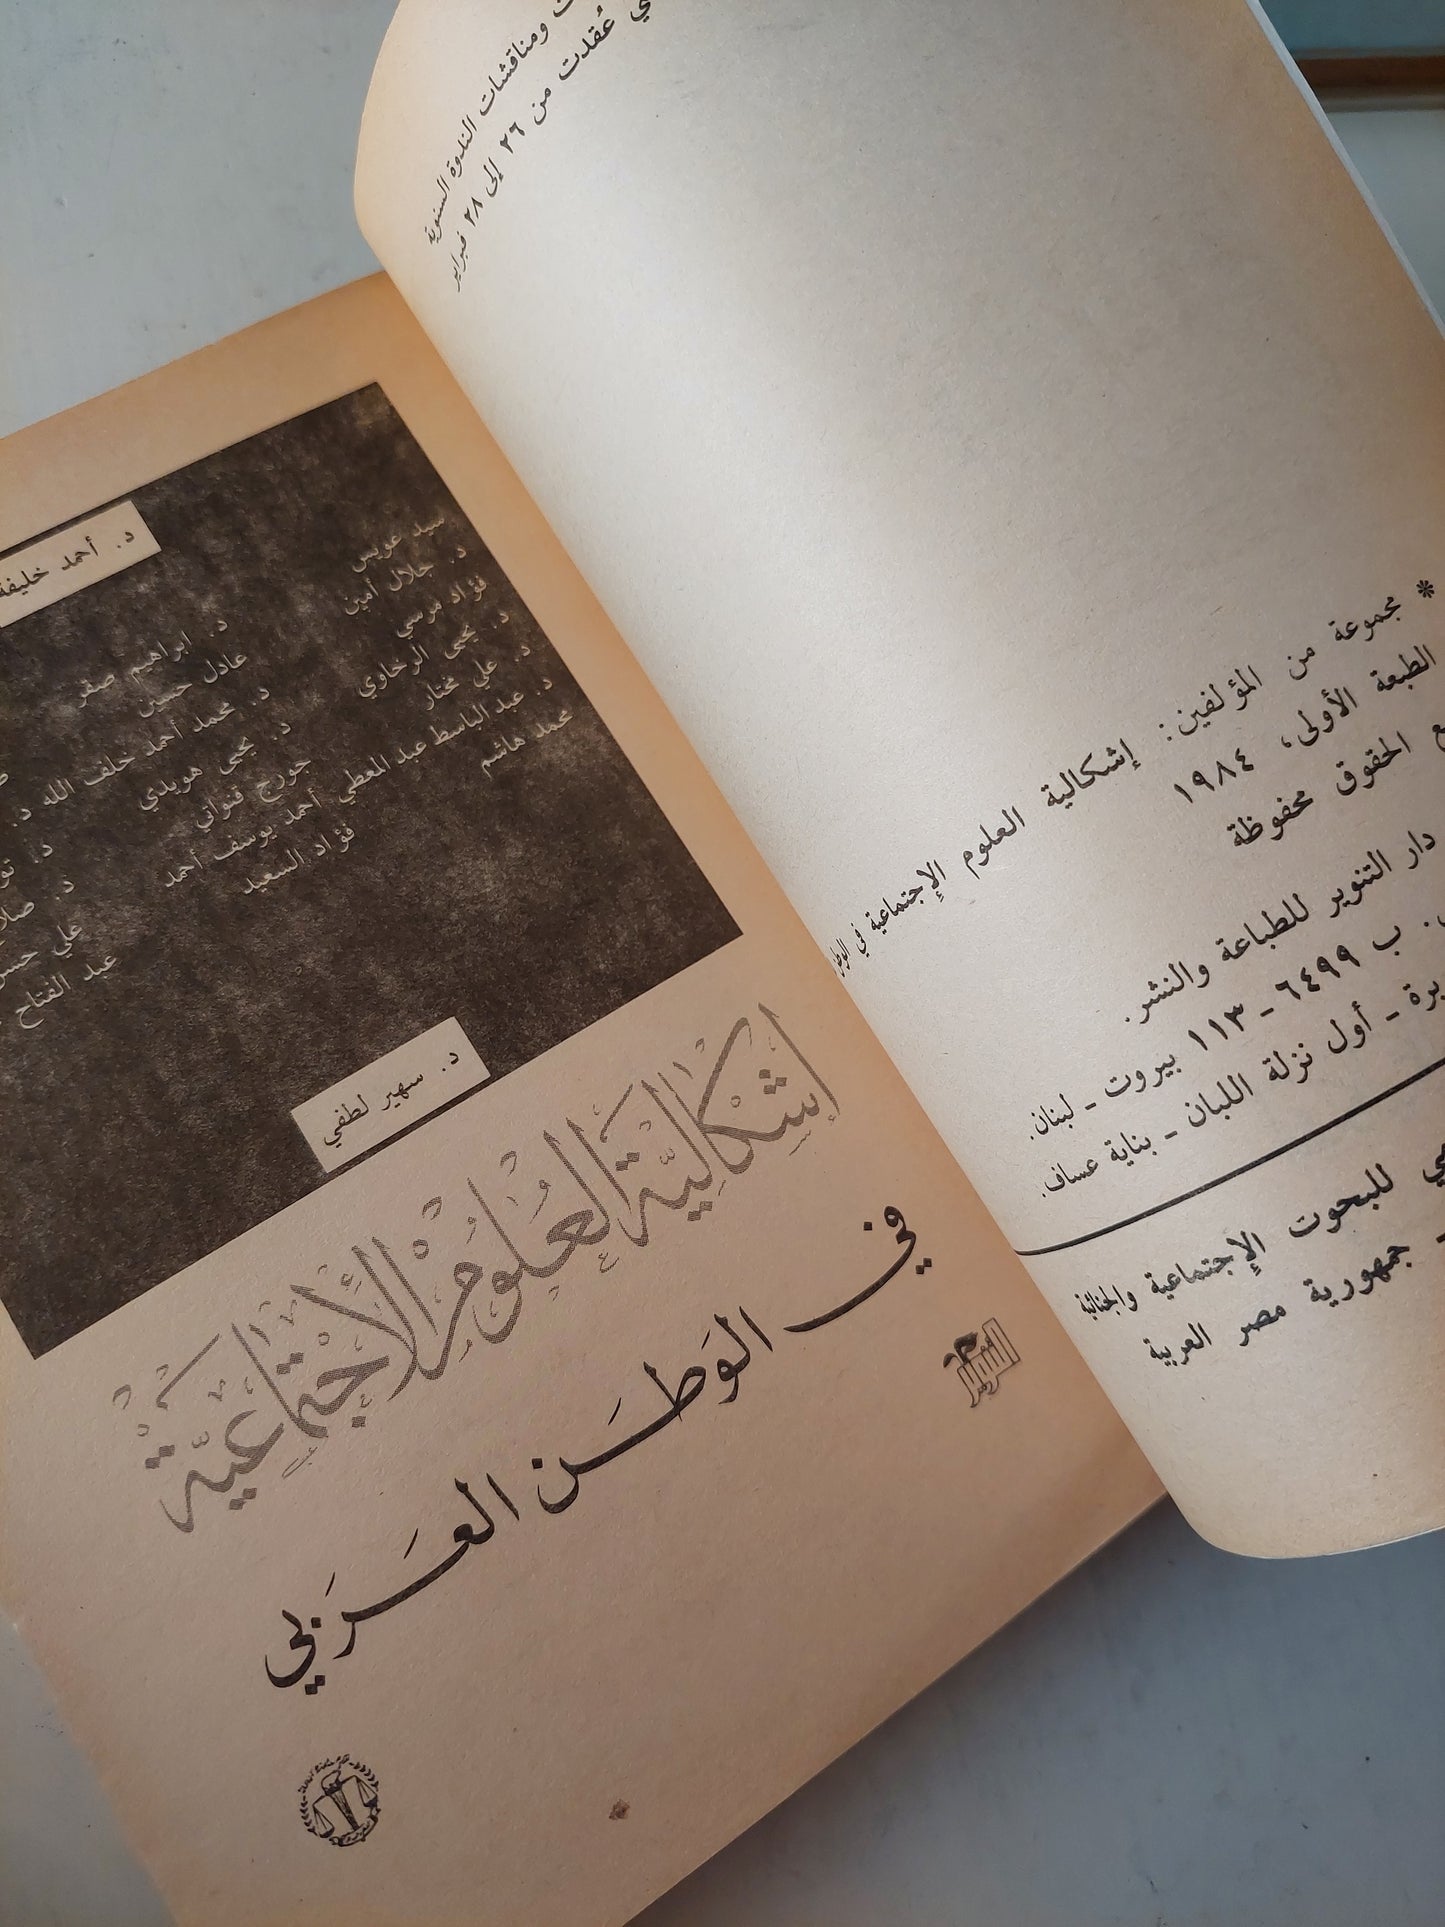 ومناقشات الندوة السنوية
عُقدت من ٢٦ إلى ٢٨ فبراير
* مجموعة من المؤلفين: إشكالية العلوم الإجتماعية في الوطن
الطبعة الأولى، ١٩٨٤
الحقوق محفوظة
دار التنوير للطباعة والنشر.
ب ٦٤٩٩ - ١١٣ بيروت - لبنان.
أول نزلة اللبان - بناية عساف.
للبحوث الإجتماعية والجنائية
- جمهورية مصر العربية
د. أحمد خليفة
سيد عويس
د. جلال أمين
فؤاد مرسي
د. يحيى الرخاوي
د. علي مختار
د. عبد الباسط عبد المعطي
محمد هاشم
د. ابراهيم صقر
عادل حسين
د. محمد أحمد خلف الله
د. يحيى هويدي
جورج قنواتي
أحمد يوسف أحمد
فؤاد السعيد
د.
د.
د.
علي
عبد الفتاح
د. سهير لطفي
إشكاليّة العُلوم الأجتماعيّة
في الوَطَن العَرَبي
التنوير